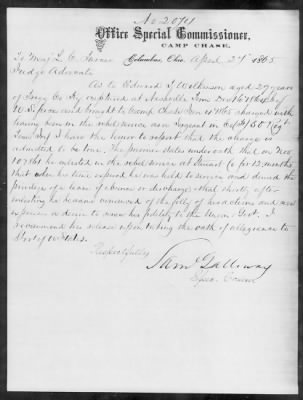 No 2094
Office Special Commissioner,
CAMP CHASE.
Columbus, Ohio April 29 1865
To Maj L. C. Turner
Judge Advocate
As to Edward J. Wilkinson aged 29 years
of Co captured at Nashville Tenn Dec 1864
and brought to Camp Chase Jan 1865 charged with
having been in the rebel service as Sergeant in Co
Tenn I have the honor to report that the charge is
admitted to be true. The prisoner states under oath that on Nov
10 1861 he enlisted in the rebel service at Co for 12 months
that when his time expired he was held to service and denied the
privilege of a leave of absence or discharge - that shortly after
enlisting he became convinced of the folly of his actions and now
expresses a desire to renew his fidelity to the Union. Govt. I
recommend his release upon taking the oath of allegiance to
the Govt of U States.
Respectfully
Sam Galloway
Spec. Comm